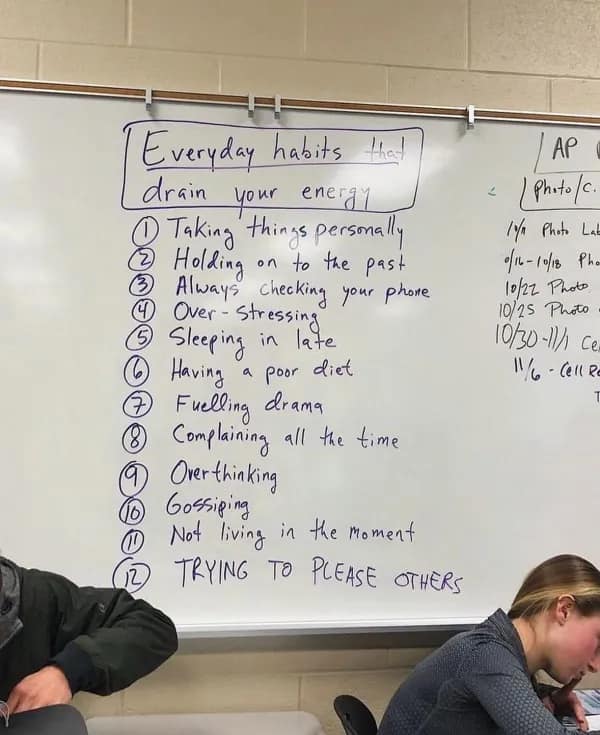 Everyday habits that
drain your energy
① Taking things personally
② Holding on to the past
③ Always checking your phone
④ Over-stressing
⑤ Sleeping in late
⑥ Having a poor diet
⑦ Fuelling drama
⑧ Complaining all the time
⑨ Overthinking
⑩ Gossiping
⑪ Not living in the moment
⑫ TRYING TO PLEASE OTHERS
AP
Photo/C.
Photo Lab
10/16-10/18 Pho
10/22 Photo
10/25 Photo
10/30-11/1 Ce
11/6 - Cell Re
T